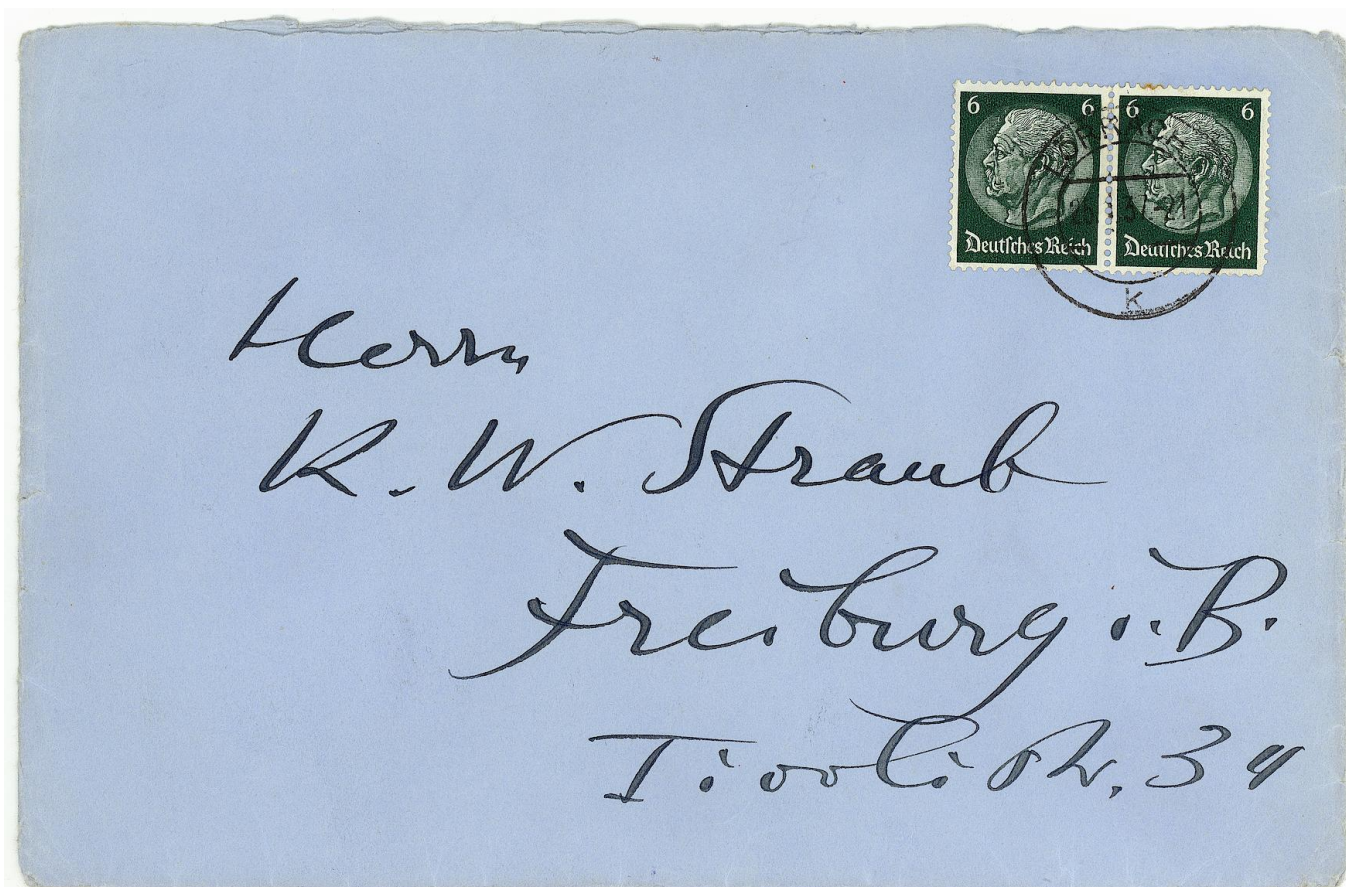 6 6 6 6
Deutsches Reich Deutsches Reich
LÖRRACH
k
Herrn
K. W. Straub
Freiburg i. B.
Tivolistr. 34